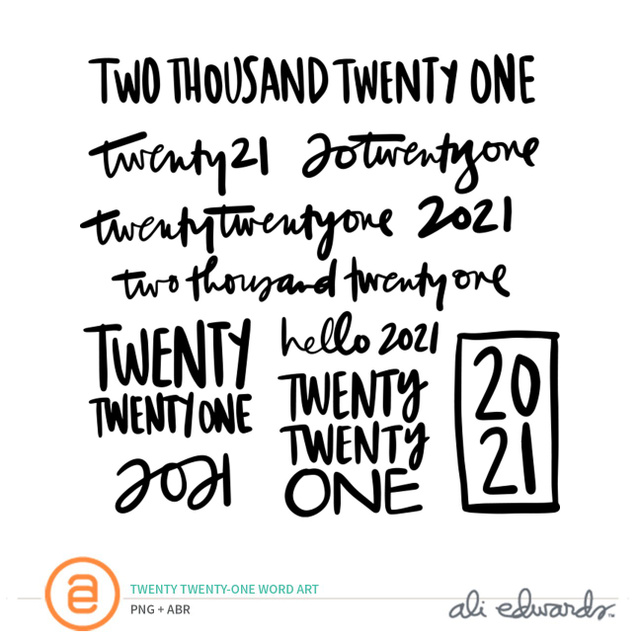 TWO THOUSAND TWENTY ONE
twenty21 20twentyone
twentytwentyone 2021
two thousand twenty one
TWENTY
TWENTY ONE
2021
hello 2021
TWENTY
TWENTY
ONE
20
21
a
TWENTY TWENTY-ONE WORD ART
PNG + ABR
ali edwards™